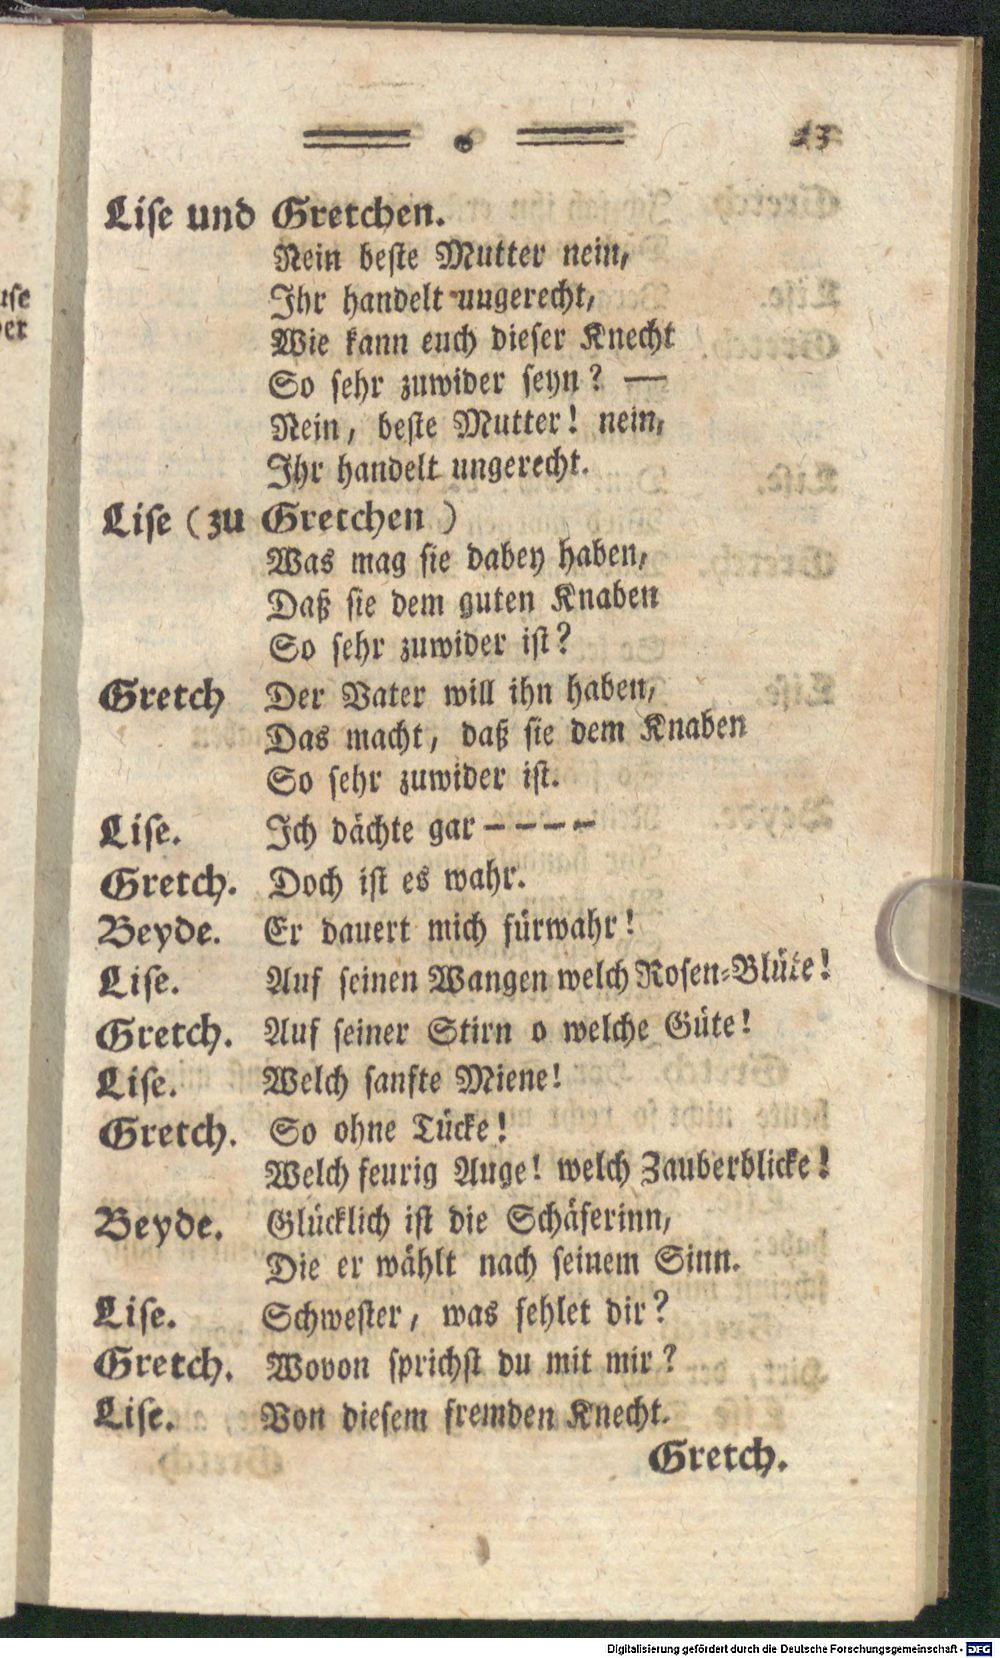 23
Lise und Gretchen.
Nein beste Mutter nein,
Ihr handelt ungerecht,
Wie kann euch dieser Knecht
So sehr zuwider seyn? —
Nein, beste Mutter! nein,
Ihr handelt ungerecht.
Lise (zu Gretchen)
Was mag sie dabey haben,
Daß sie dem guten Knaben
So sehr zuwider ist?
Gretch Der Vater will ihn haben,
Das macht, daß sie dem Knaben
So sehr zuwider ist.
Lise. Ich dächte gar – – – –
Gretch. Doch ist es wahr.
Beyde. Er dauert mich fürwahr!
Lise. Auf seinen Wangen welch Rosen-Blüte!
Gretch. Auf seiner Stirn o welche Güte!
Lise. Welch sanfte Miene!
Gretch. So ohne Tücke!
Welch feurig Auge! welch Zauberblicke!
Beyde. Glücklich ist die Schäferinn,
Die er wählt nach seinem Sinn.
Lise. Schwester, was fehlet dir?
Gretch. Wovon sprichst du mit mir?
Lise. Von diesem fremden Knecht.
Gretch.
Digitalisierung gefördert durch die Deutsche Forschungsgemeinschaft - DFG